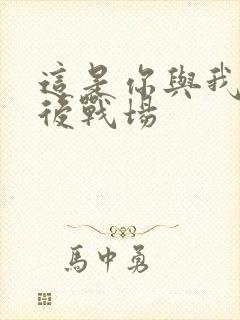 這是你與我
後戰場
馬中勇